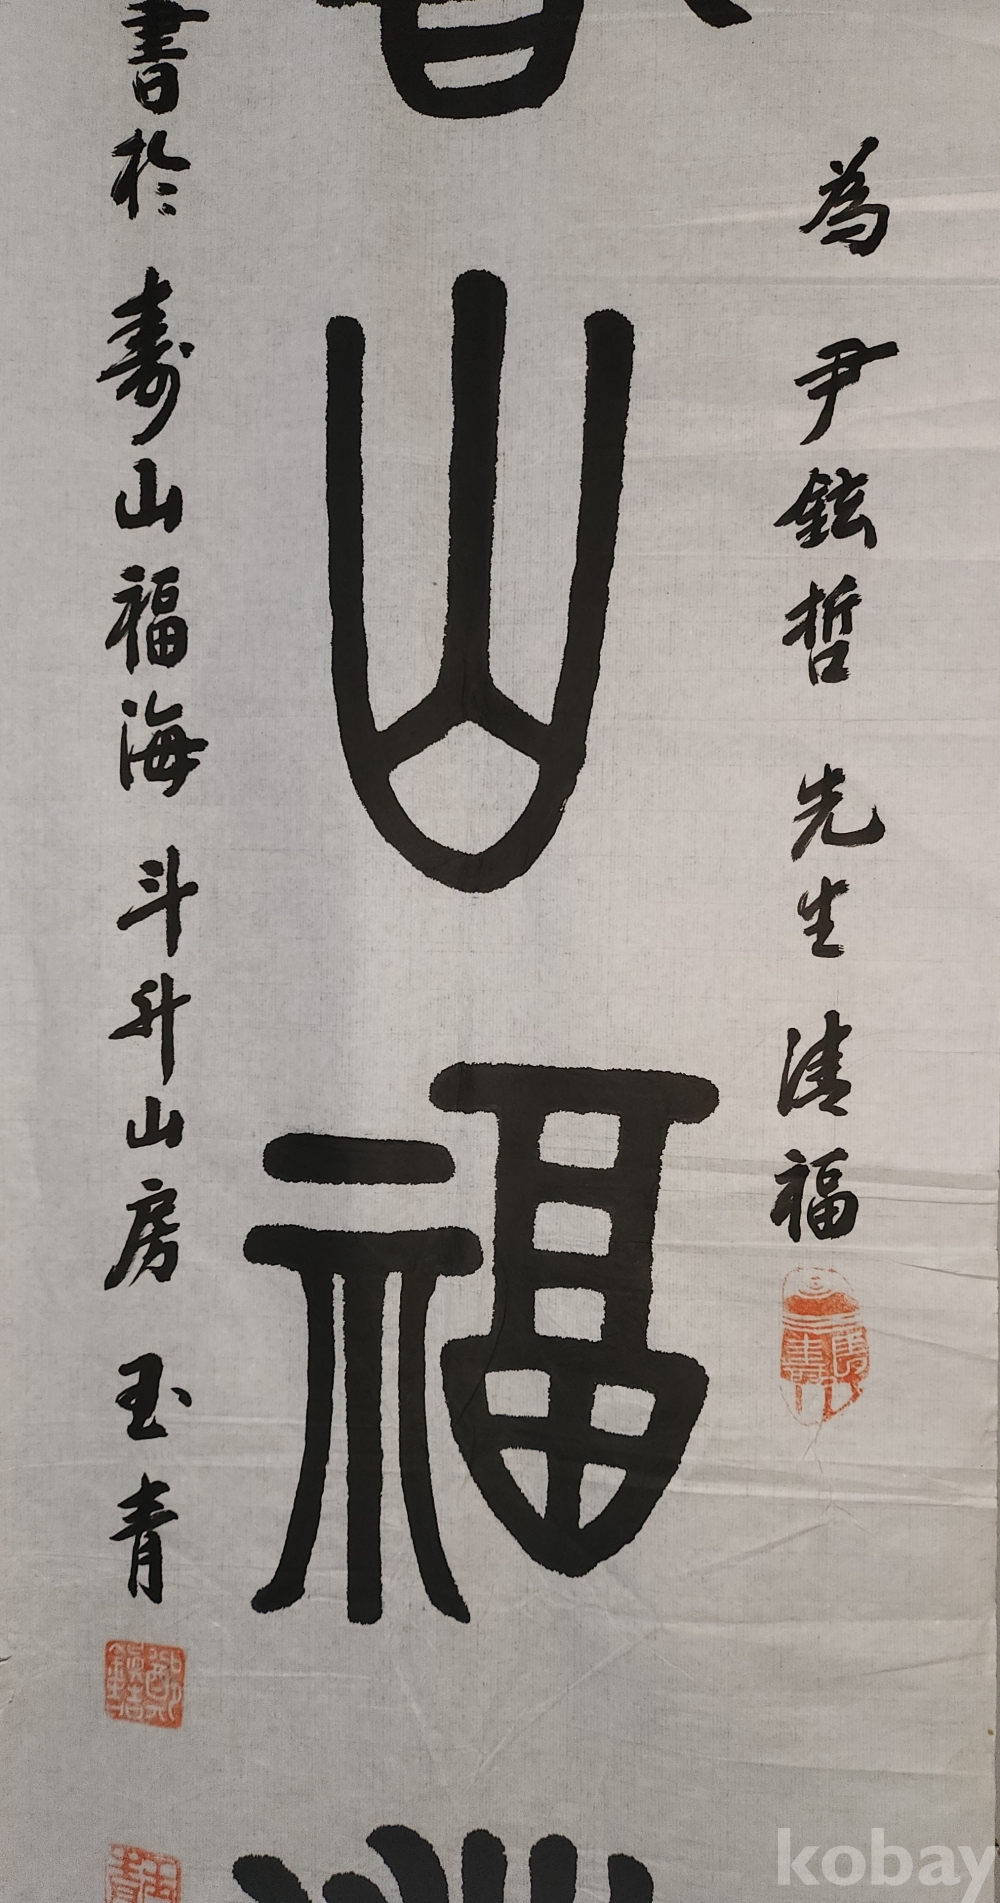 為 尹鉉哲 先生 清福
山福
書於 壽山福海 斗升山房 玉青
kobay